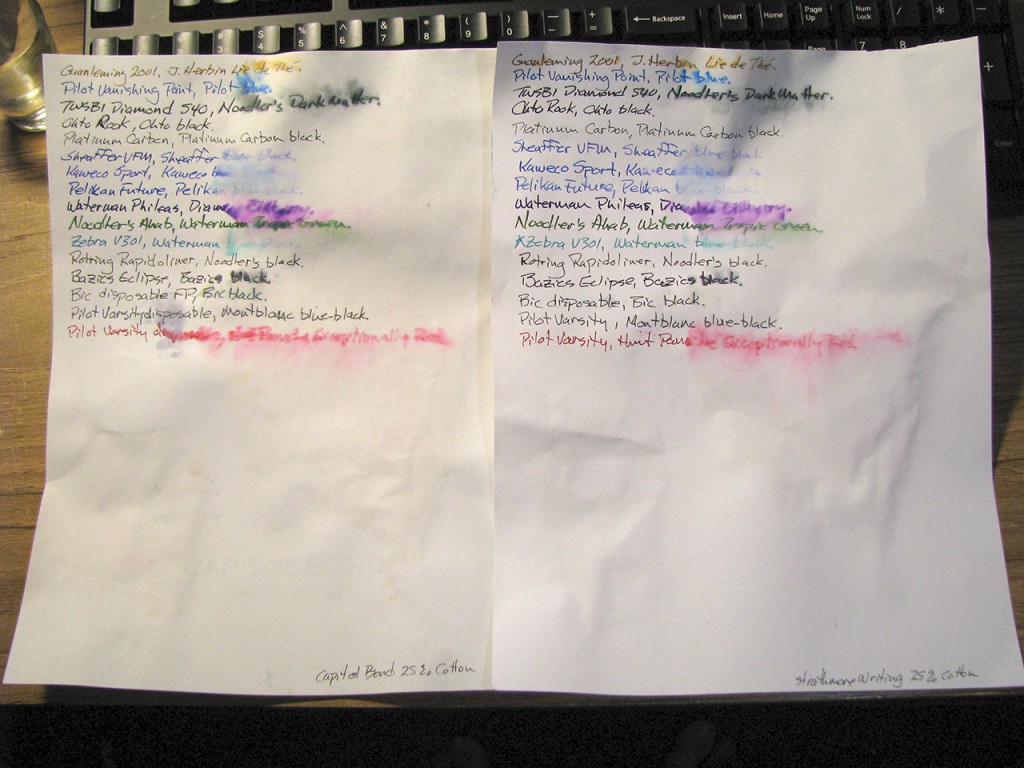 Guanleming 2001, J. Herbin Lie de Thé.
Pilot Vanishing Point, Pilot blue.
TWSBI Diamond 540, Noodler's Dark Matter.
Ohto Rook, Ohto black.
Platinum Carbon, Platinum Carbon black.
Sheaffer VFM, Sheaffer blue-black.
Kaweco Sport, Kaweco b
Pelikan Future, Pelikan blue-black.
Waterman Phileas, Diam
Noodler's Ahab, Waterman Tropic Green.
Zebra V301, Waterman
Rotring Rapidoliner, Noodler's black.
Bazics Eclipse, Bazics black.
Bic disposable FP, Bic black.
Pilot Varsity disposable, Montblanc blue-black.
Pilot Varsity Exceptionally Red
Capitol Bond 25% Cotton
Guanleming 2001, J. Herbin Lie de Thé.
Pilot Vanishing Point, Pilot blue.
TWSBI Diamond 540, Noodler's Dark Matter.
Ohto Rook, Ohto black.
Platinum Carbon, Platinum Carbon black.
Sheaffer VFM, Sheaffer blue-black
Kaweco Sport, Kaweco
Pelikan Future, Pelikan blue-black.
Waterman Phileas, Dia
Noodler's Ahab, Waterman Tropic Green.
Zebra V301, Waterman blue-black
Rotring Rapidoliner, Noodler's black.
Bazics Eclipse, Bazics black.
Bic disposable, Bic black.
Pilot Varsity, Montblanc blue-black.
Pilot Varsity, Huit Exceptionally Red
Strathmore Writing 25% Cotton
Backspace
Insert
Home
Page Up
Num Lock